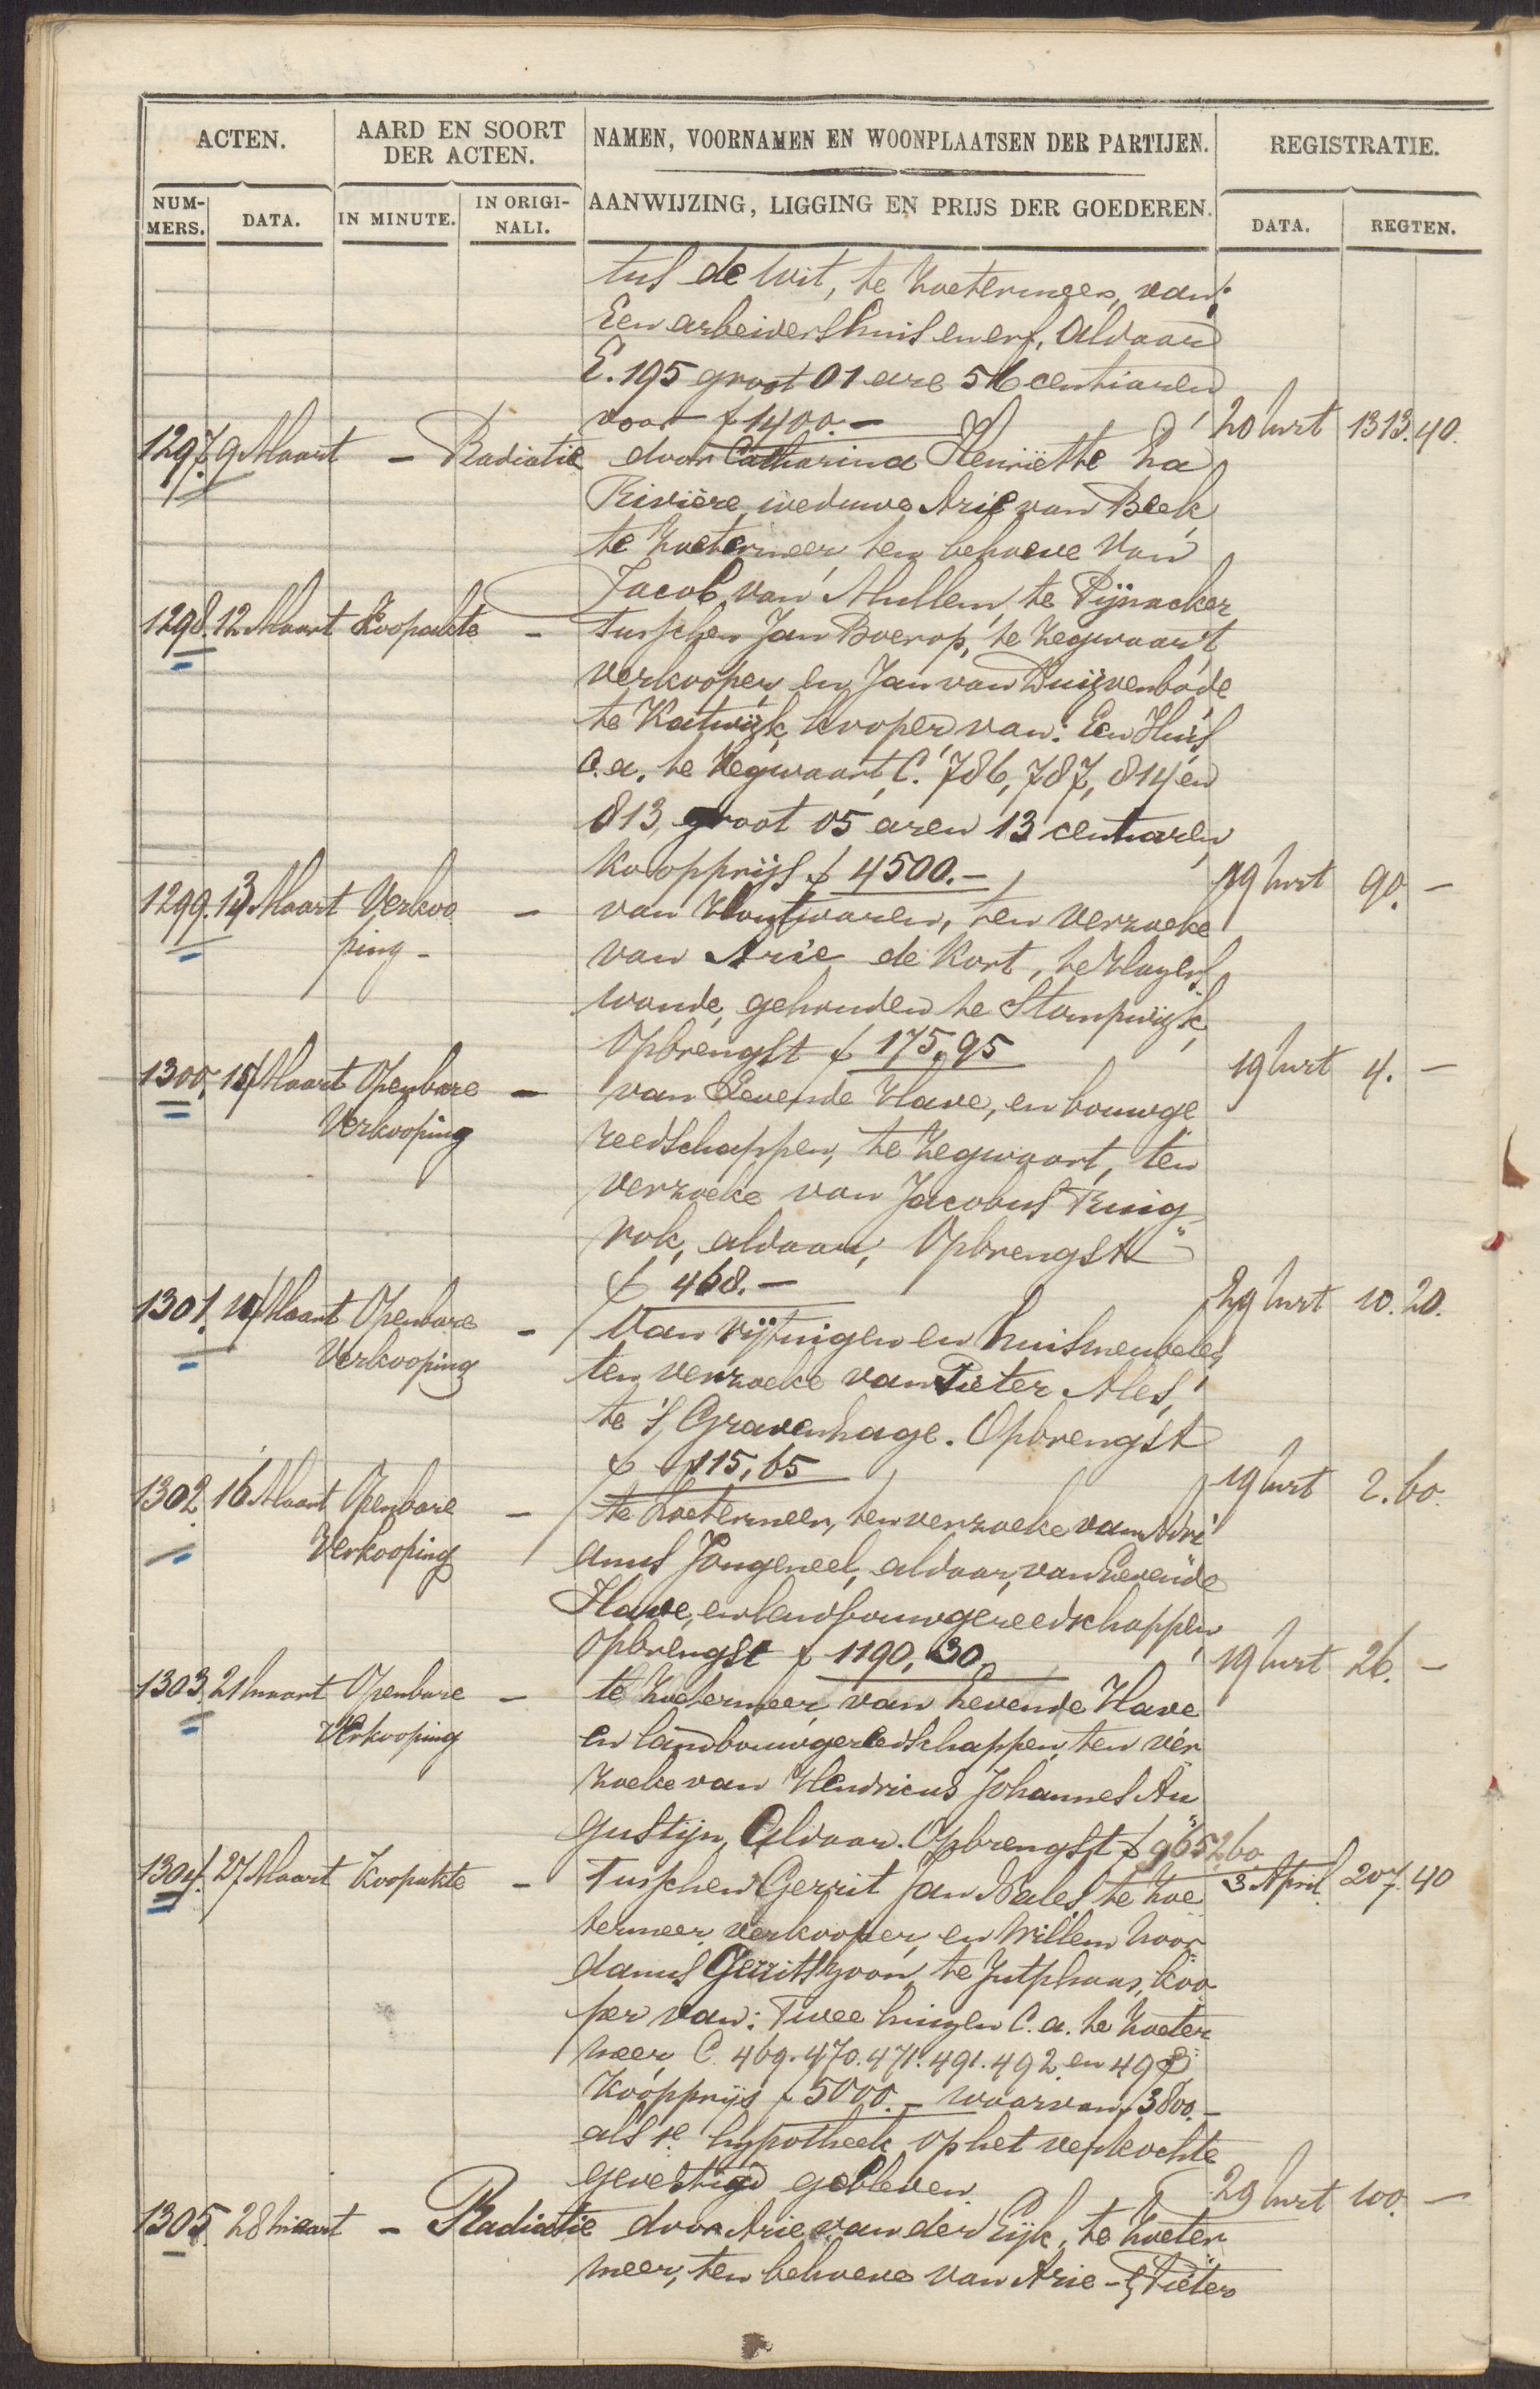 ACTEN.
AARD EN SOORT
DER ACTEN.
NAMEN, VOORNAMEN EN WOONPLAATSEN DER PARTIJEN.
REGISTRATIE.
NUM-
MERS.
DATA.
IN MINUTE.
IN ORIGI-
NALI.
AANWIJZING, LIGGING EN PRIJS DER GOEDEREN.
DATA.
REGTEN.
tus de Wit, te Zoetermeer, van:
Een arbeidershuis en erf, aldaar
E. 195 groot 01 are 56 centiaren
voor f 1400.- 20 hrt 1313.40.
1297. 9 Maart - Radiatie door Catharina Henriëtte La
Rivière, weduwe Arie van Beek
te Zoetermeer, ten behoeve van
Jacob van Mullem, te Pijnacker
1298. 12 Maart Koopakte - tusschen Jan Boerop, te Zegwaart
verkooper, en Jan van Duijvenbode
te Katwijk, kooper van: Een Huis
c.a. te Zegwaart, C. 786, 787, 814 en
813, groot 05 aren 13 centiaren,
Koopprijs f 4500.- 19 hrt 90.-
1299. 13 Maart Verkoo - van Houtwaren, ten verzoeke
ping - van Arie de Kort, te Hazers
woude, gehouden te Stompwijk,
Opbrengst f 175.95 19 hrt 4.-
1300. 15 Maart Openbare - van Levende Have, en bouwge
Verkooping reedschappen, te Zegwaart, ten
verzoeke van Jacobus Ruig
rok, aldaar, Opbrengst
f 468.- 29 hrt 10.20.
1301. Maart Openbare - van rijtuigen en huismeubelen
Verkooping ten verzoeke van Pieter Ales,
te 's Gravenhage. Opbrengst
f 115,65 19 hrt 2.60.
1302. 16 Maart Openbare - te Zoetermeer, ten verzoeke van Adri
Verkooping anus Jongeneel, aldaar, van Levende
Have, en landbouwgereedschappen
Opbrengst f 1190,30. 19 hrt 26.-
1303. 21 maart Openbare - te Zoetermeer, van Levende Have
Verkooping en landbouwgereedschappen, ten ver
zoeke van Hendricus Johannes Au
gustijn, Aldaar. Opbrengst f 9652,60
1304. 27 Maart Koopakte - Tusschen Gerrit Jan Bales, te Zoe 3 April 207.40
termeer, verkooper, en Willem Noor
danus Gerritszoon, te Jutphaas, koo
per van: Twee huizen c.a. te Zoeter
meer, C. 469. 470. 471. 491. 492. en 498
Koopprijs f 5000.- waarvan f 3800.-
als 1e hypotheek op het verkochte
gevestigd gebleven. 29 hrt 100.-
1305. 28 maart - Radiatie door Arie van der Eijk, te Zoeter
meer, ten behoeve van Arie - & Pieter